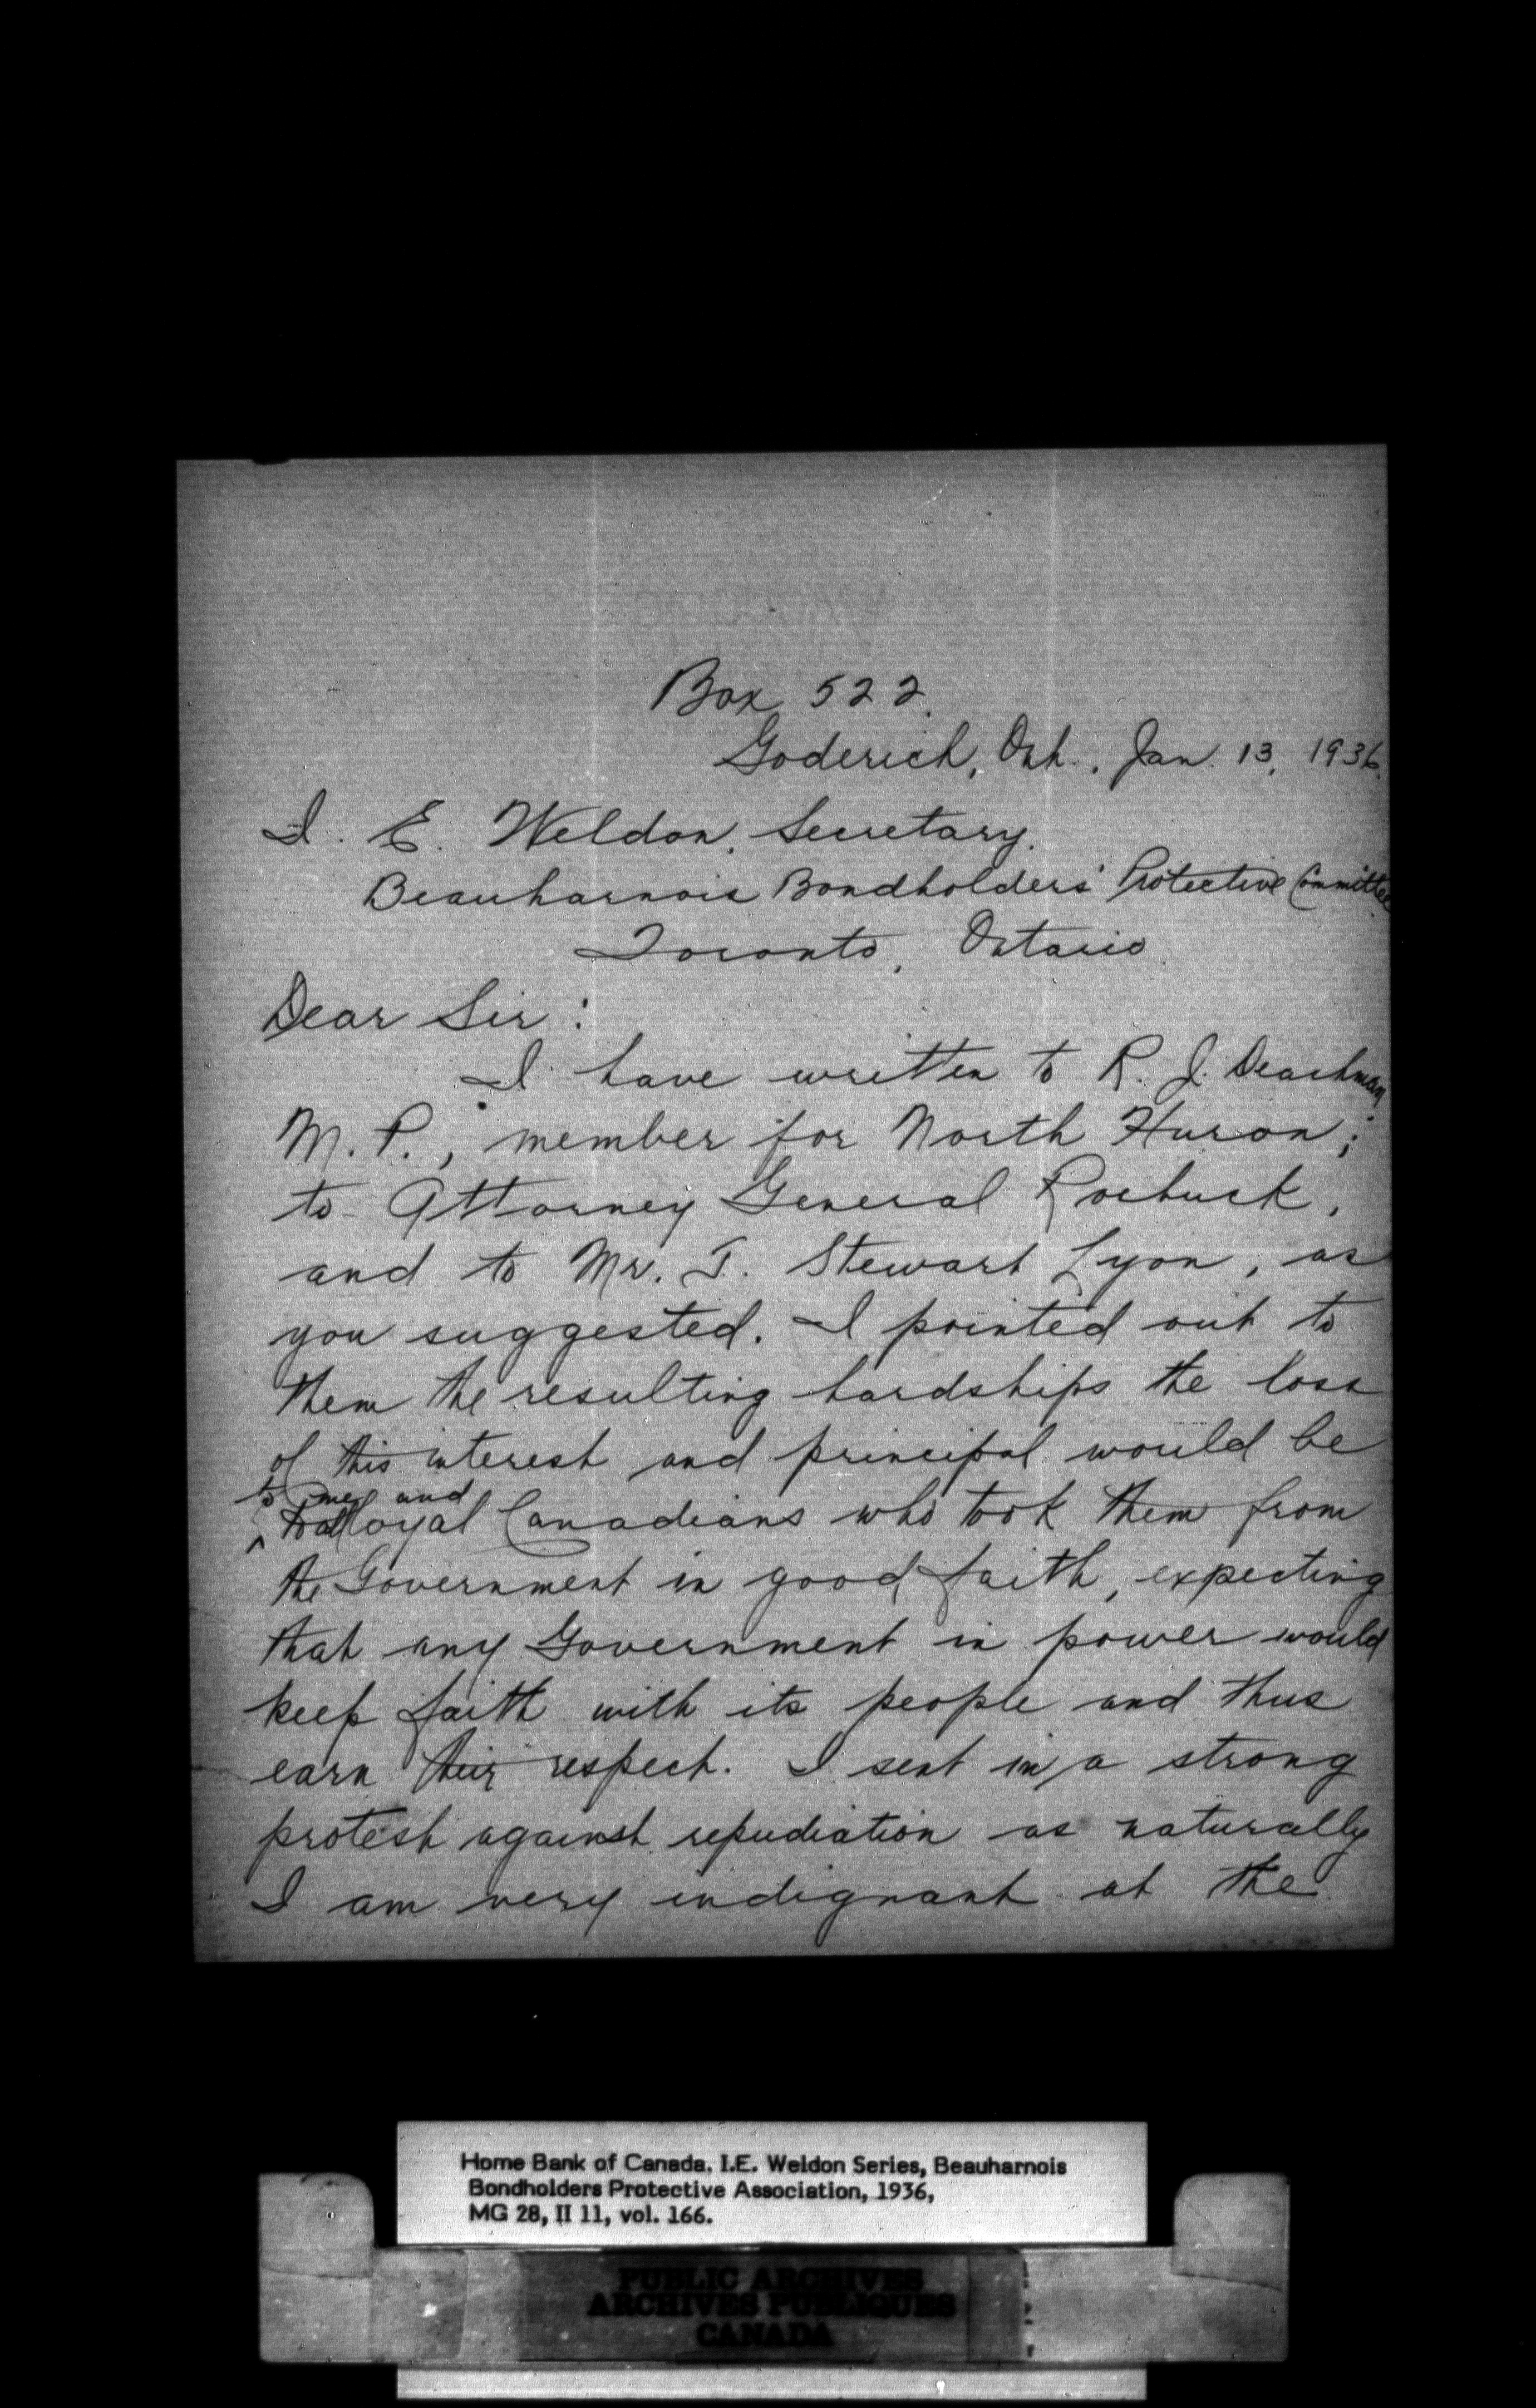 Box 522.
Goderich, Ont., Jan. 13, 1936.
I. E. Weldon, Secretary,
Beauharnois Bondholders' Protective Committee
Toronto, Ontario.
Dear Sir:
I have written to R. J. Deachman,
M. P., member for North Huron;
to Attorney General Roebuck,
and to Mr. T. Stewart Lyon, as
you suggested. I pointed out to
them the resulting hardships the loss
of this interest and principal would be
to me and
to all loyal Canadians who took them from
the Government in good faith, expecting
that any Government in power would
keep faith with its people and thus
earn their respect. I sent in a strong
protest against repudiation as naturally
I am very indignant at the
Home Bank of Canada. I.E. Weldon Series, Beauharnois
Bondholders Protective Association, 1936,
MG 28, II 11, vol. 166.
PUBLIC ARCHIVES
ARCHIVES PUBLIQUES
CANADA